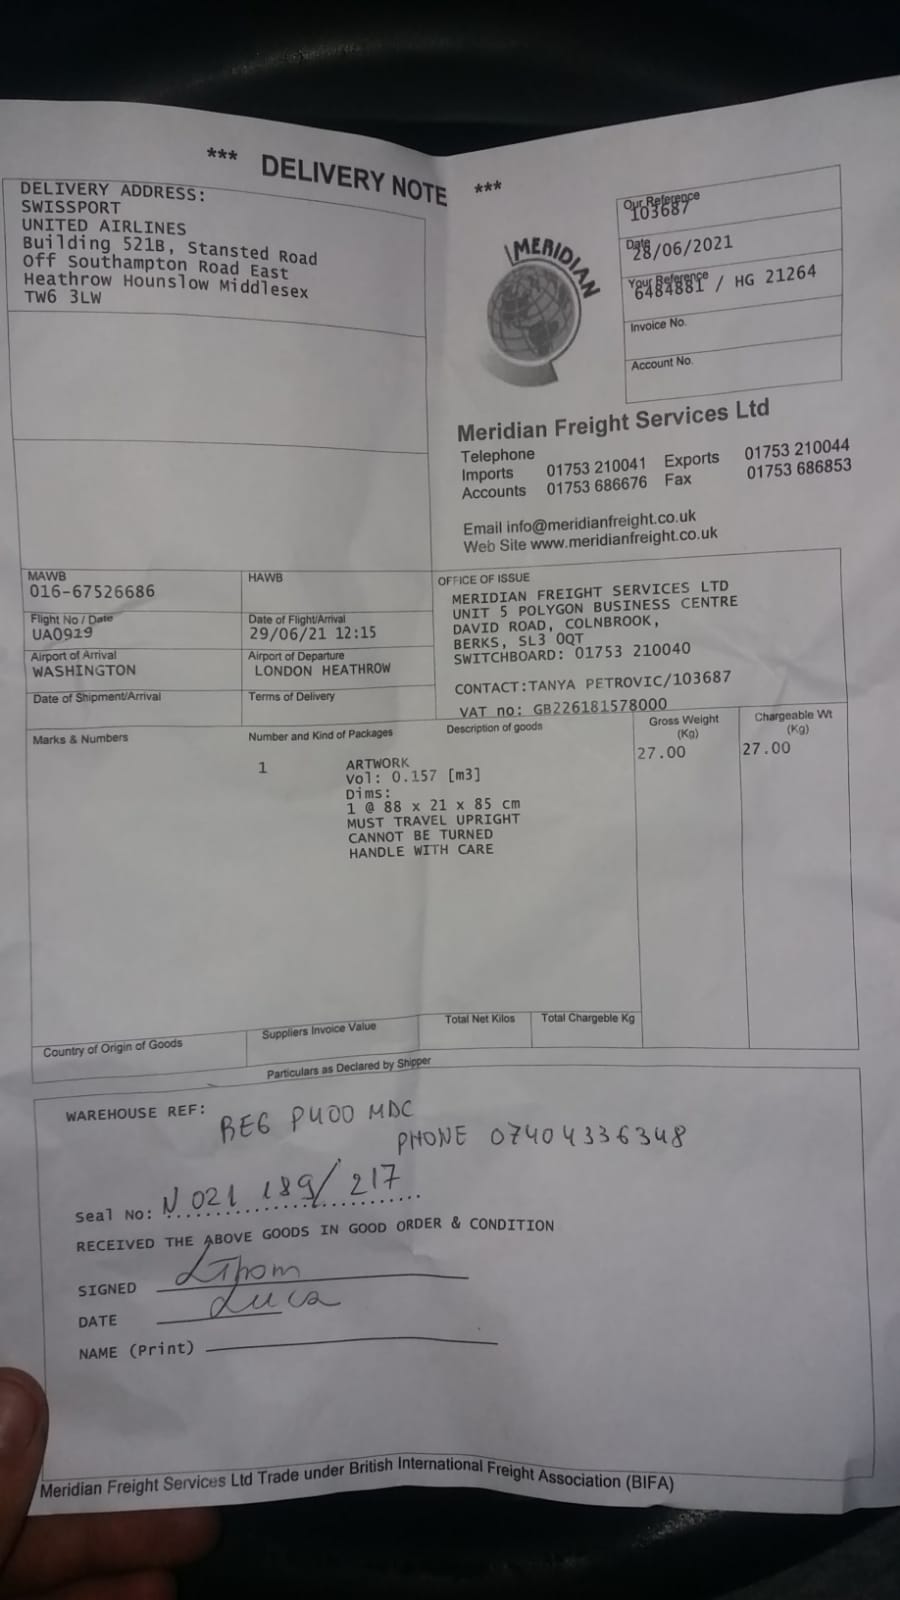 *** DELIVERY NOTE ***
DELIVERY ADDRESS:
SWISSPORT
UNITED AIRLINES
Building 521B, Stansted Road
Off Southampton Road East
Heathrow Hounslow Middlesex
TW6 3LW
MERIDIAN
Our Reference
103687
Date
28/06/2021
Your Reference
6484881 / HG 21264
Invoice No.
Account No.
Meridian Freight Services Ltd
Telephone
Imports 01753 210041 Exports 01753 210044
Accounts 01753 686676 Fax 01753 686853
Email info@meridianfreight.co.uk
Web Site www.meridianfreight.co.uk
MAWB
016-67526686
HAWB
Flight No / Date
UA0919
Date of Flight/Arrival
29/06/21 12:15
Airport of Arrival
WASHINGTON
Airport of Departure
LONDON HEATHROW
Date of Shipment/Arrival
Terms of Delivery
OFFICE OF ISSUE
MERIDIAN FREIGHT SERVICES LTD
UNIT 5 POLYGON BUSINESS CENTRE
DAVID ROAD, COLNBROOK,
BERKS, SL3 0QT
SWITCHBOARD: 01753 210040
CONTACT:TANYA PETROVIC/103687
VAT no: GB226181578000
Marks & Numbers
Number and Kind of Packages
Description of goods
Gross Weight
(Kg)
Chargeable Wt
(Kg)
1
ARTWORK
Vol: 0.157 [m3]
Dims:
1 @ 88 x 21 x 85 cm
MUST TRAVEL UPRIGHT
CANNOT BE TURNED
HANDLE WITH CARE
27.00
27.00
Country of Origin of Goods
Suppliers Invoice Value
Total Net Kilos
Total Chargeble Kg
Particulars as Declared by Shipper
WAREHOUSE REF: REG P400 MDC
PHONE 07404336348
Seal No: N 021 189/217
RECEIVED THE ABOVE GOODS IN GOOD ORDER & CONDITION
SIGNED
DATE Luca
NAME (Print)
Meridian Freight Services Ltd Trade under British International Freight Association (BIFA)